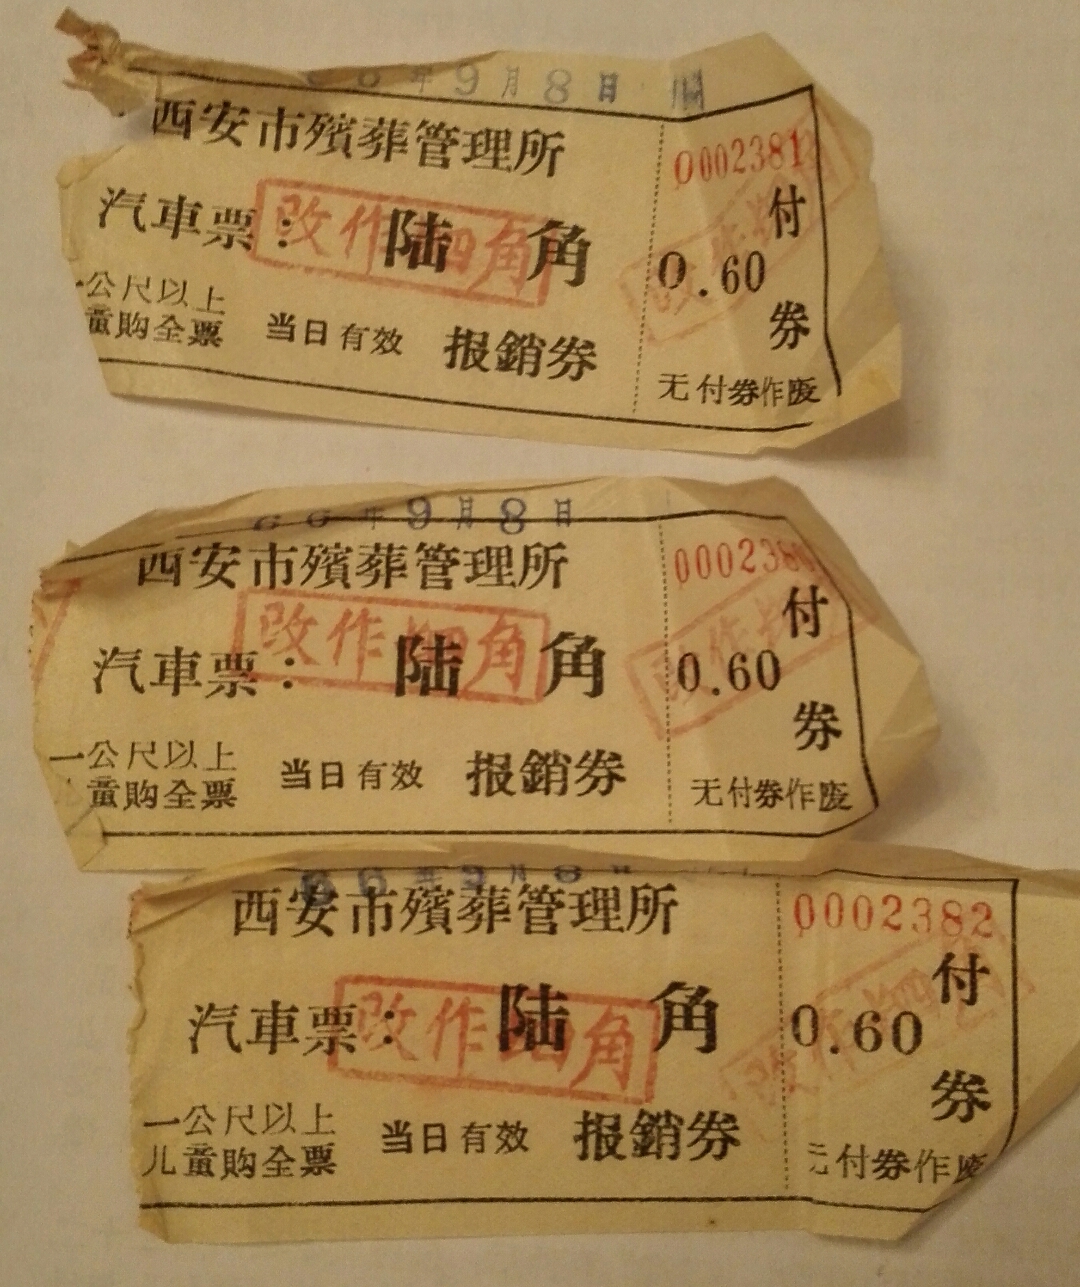 6年9月8日
西安市殯葬管理所
0002381
汽車票：陆角
改作四角
付
0.60
券
公尺以上
童購全票
当日有效
报銷券
无付券作废
66年9月8日
西安市殯葬管理所
汽車票：陆角
改作四角
付
0.60
券
一公尺以上
儿童購全票
当日有效
报銷券
无付券作废
66年9月8日
西安市殯葬管理所
0002382
汽車票：陆角
改作四角
付
0.60
券
一公尺以上
儿童購全票
当日有效
报銷券
无付券作废